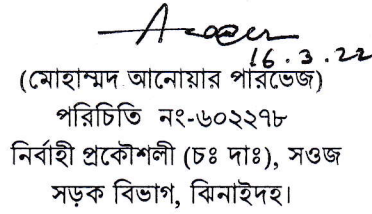 16.3.22
(মোহাম্মদ আনোয়ার পারভেজ)
পরিচিতি নং-৬০২২৭৮
নির্বাহী প্রকৌশলী (চঃ দাঃ), সওজ
সড়ক বিভাগ, ঝিনাইদহ।